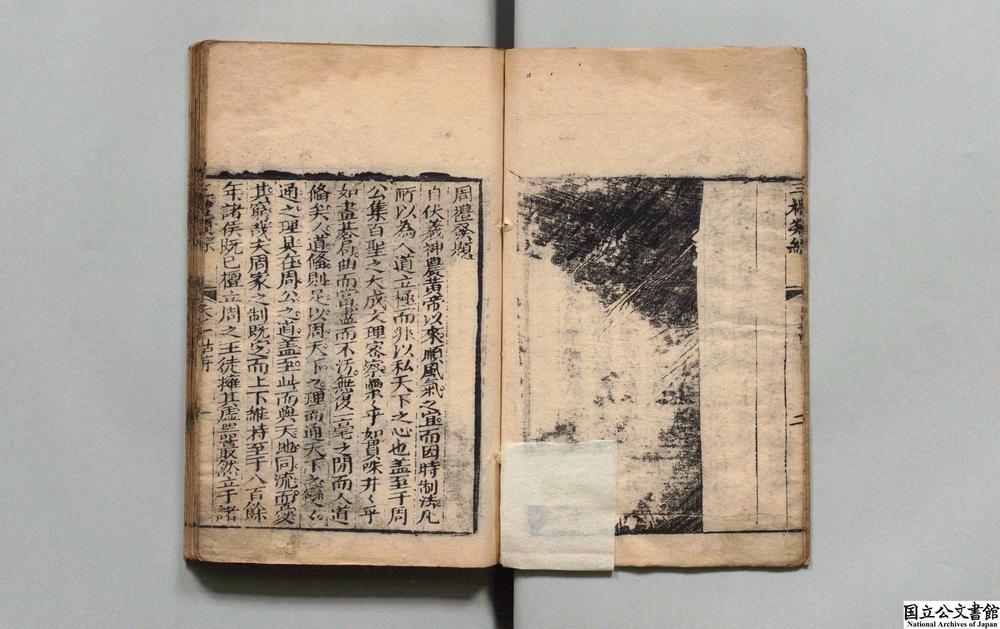 三禮考註
二
周禮發題
自伏羲神農黃帝以來順風氣之宜而因時制法凡
所以為人道立極而非以私天下之心也盖至于周
公集百聖之大成文理密察纍纍乎如貫珠井〻乎
如畫棊局曲而當盡而不汚無復一毫之閒而人道
備矣人道備則足以周天下之理而通天下之變變
通之理具在周公之道盖至此而與天地同流而憂
其窮哉夫周家之制既定而上下維持至于八百餘
年諸侯既已擅立周之王徒擁其虛器蕞然立于諸
卷一
一
国立公文書館
National Archives of Japan